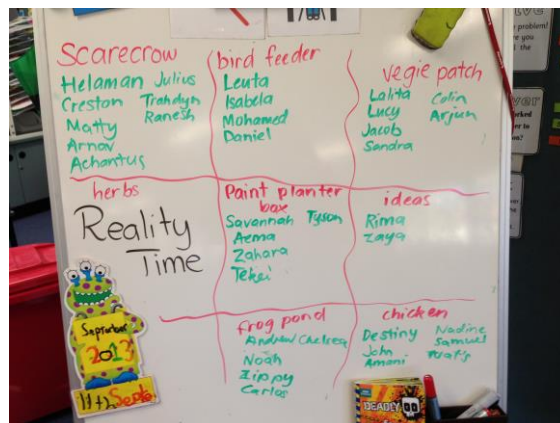 Scarecrow
Helaman Julius
Creston Trahdyn
Matty Ranesh
Arnav
Achantus
bird feeder
Leuta
Isabela
Mohamed
Daniel
vegie patch
Lalita Colin
Lucy Arjun
Jacob
Sandra
herbs
Reality
Time
Paint planter
box
Savannah Tyson
Aema
Zahara
ideas
Rima
Zaya
frog pond
Andrew Chelsea
Noah
Zippy
Carlos
chicken
Destiny Nadine
John Samuel
Amani
September
2013
11th Sept
DEADLY